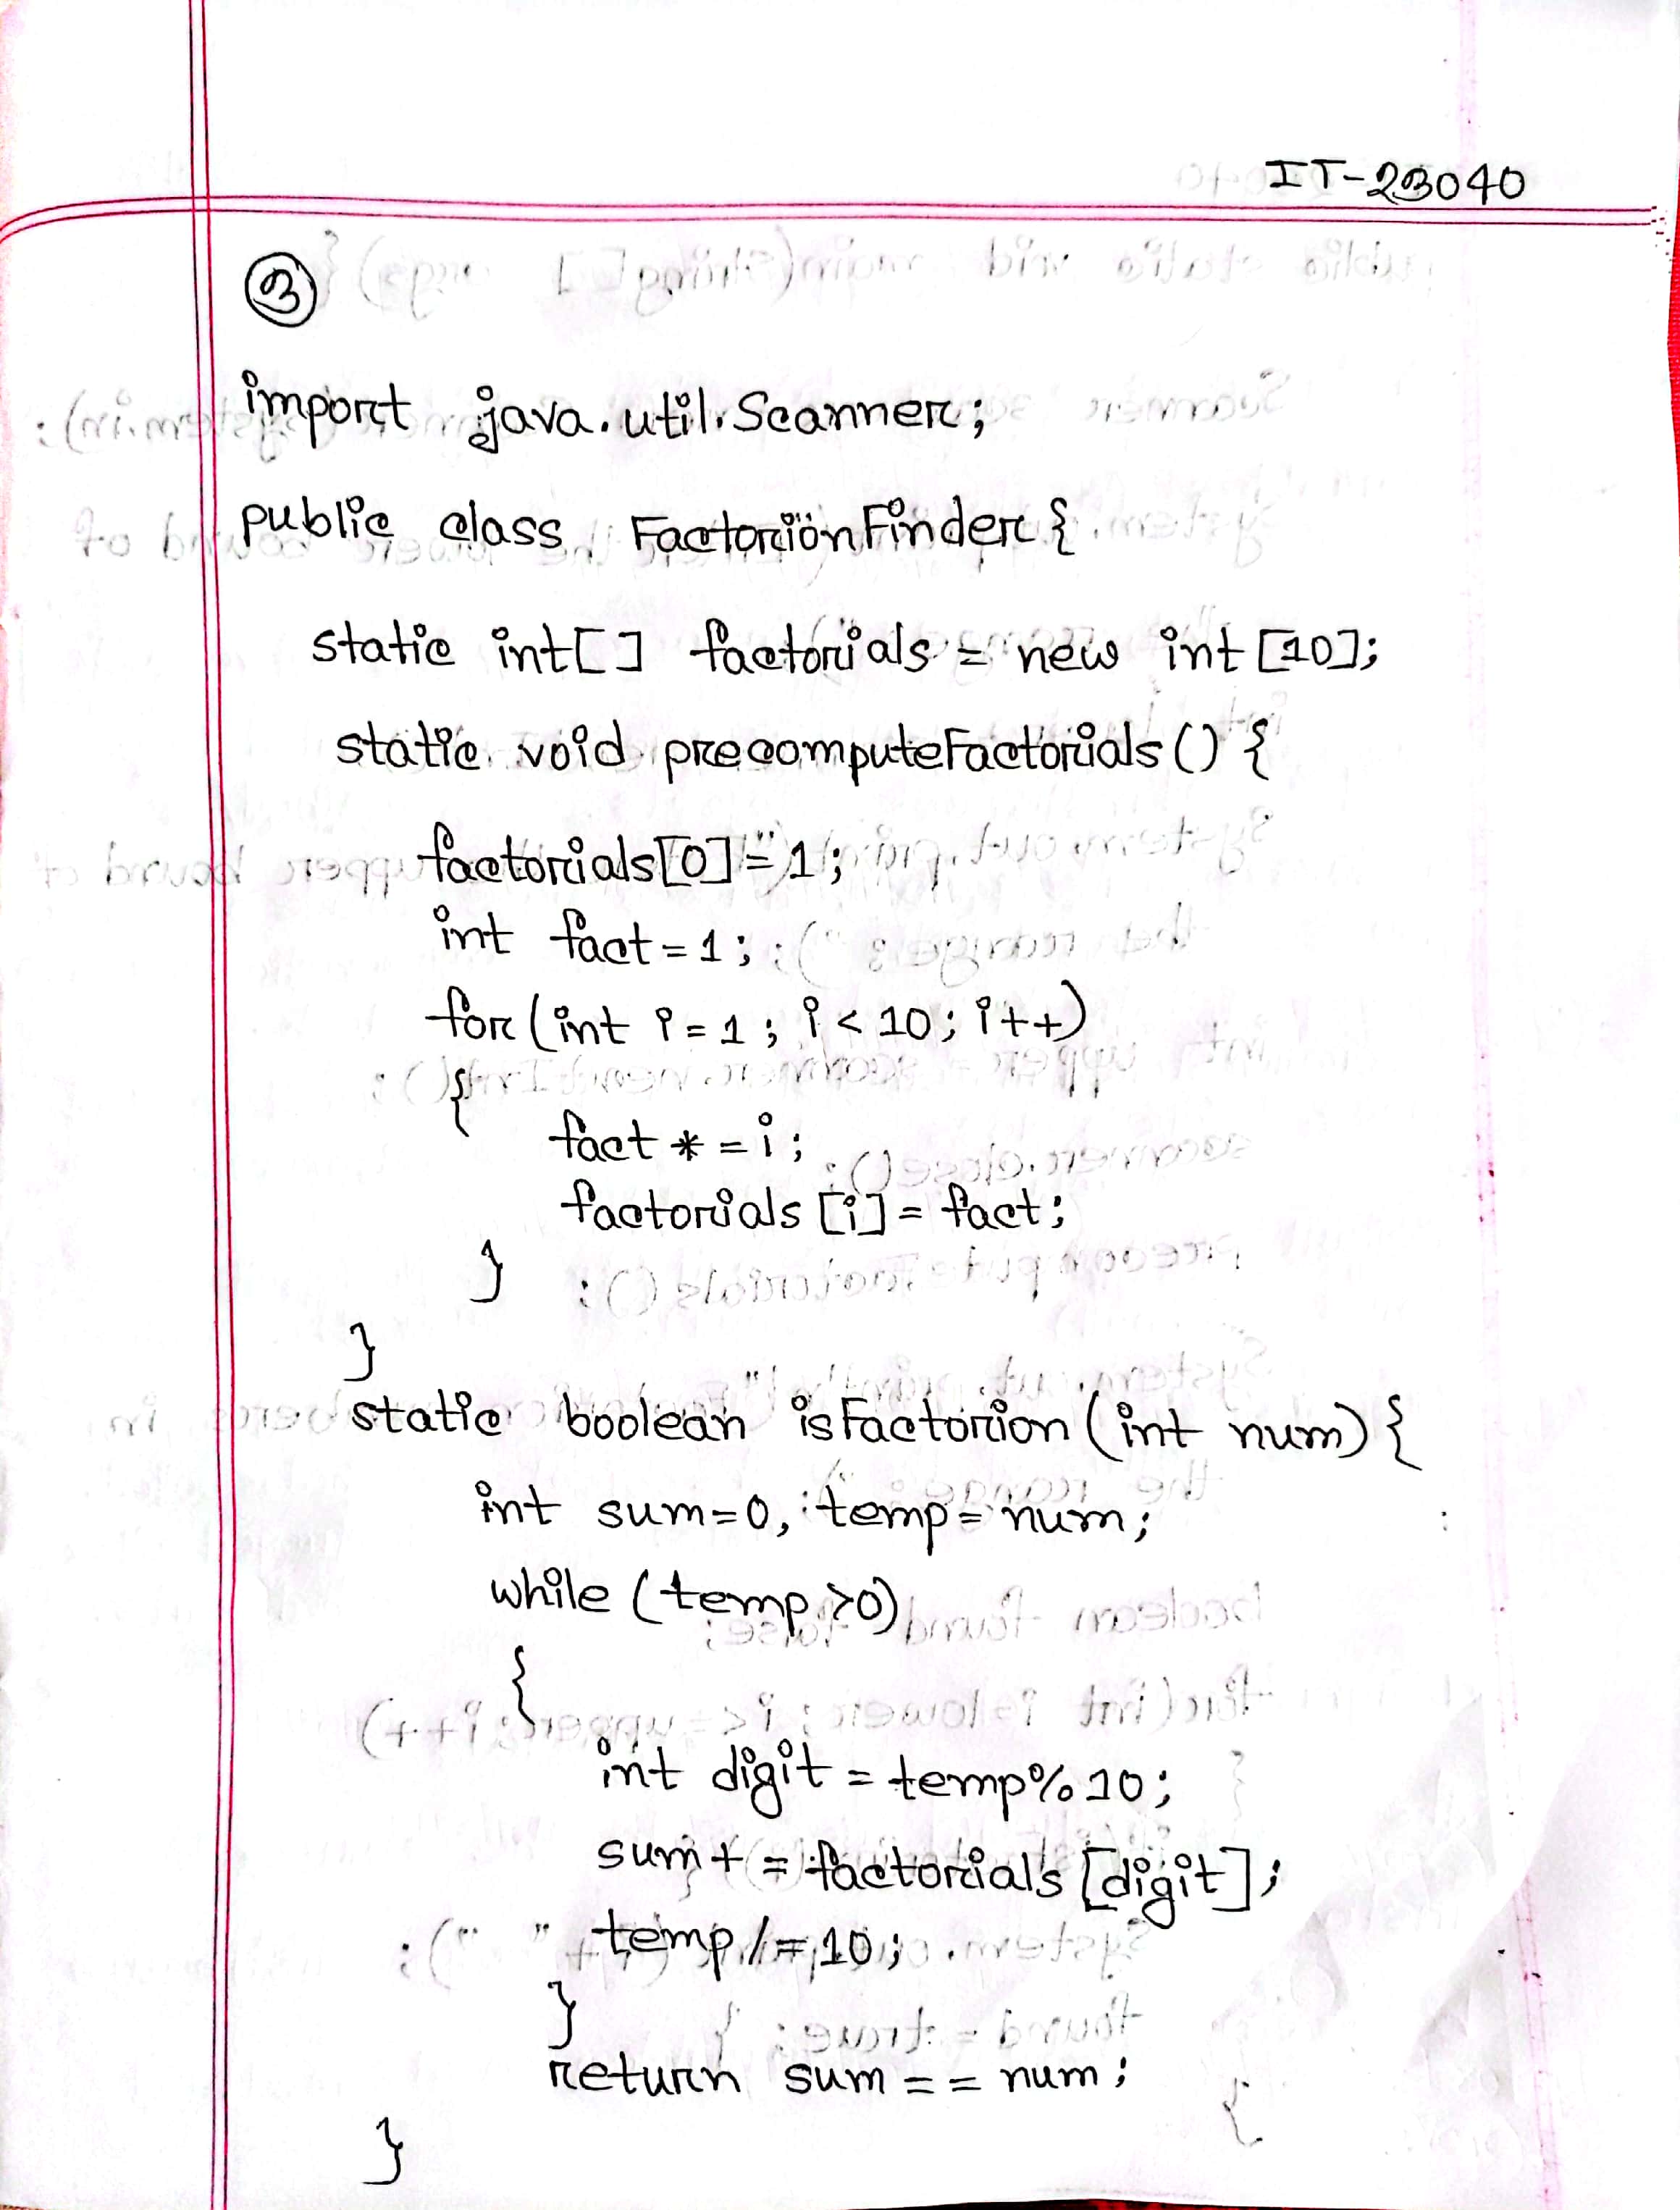 IT-23040
3
import java.util.Scanner;
public class FactorionFinder {
static int[] factorials = new int [10];
static void precomputeFactorials () {
factorials[0] = 1;
int fact = 1;
for (int i = 1; i < 10; i++)
{
fact * = i;
factorials [i] = fact;
}
}
static boolean isFactorion (int num) {
int sum=0, temp = num;
while (temp >0)
{
int digit = temp%10;
sum + = factorials [digit];
temp /= 10;
}
return sum = = num;
}